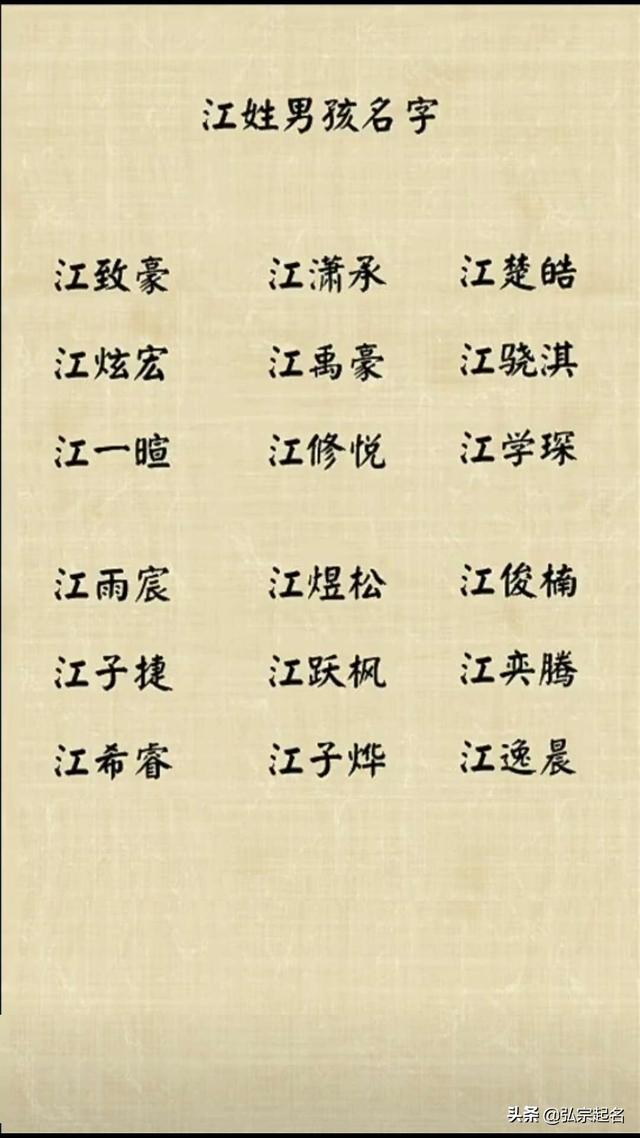 江姓男孩名字
江致豪 江潇承 江楚皓
江炫宏 江禹豪 江骁淇
江一暄 江修悦 江学琛
江雨宸 江煜松 江俊楠
江子捷 江跃枫 江奕腾
江希睿 江子烨 江逸晨
头条 @弘宗起名